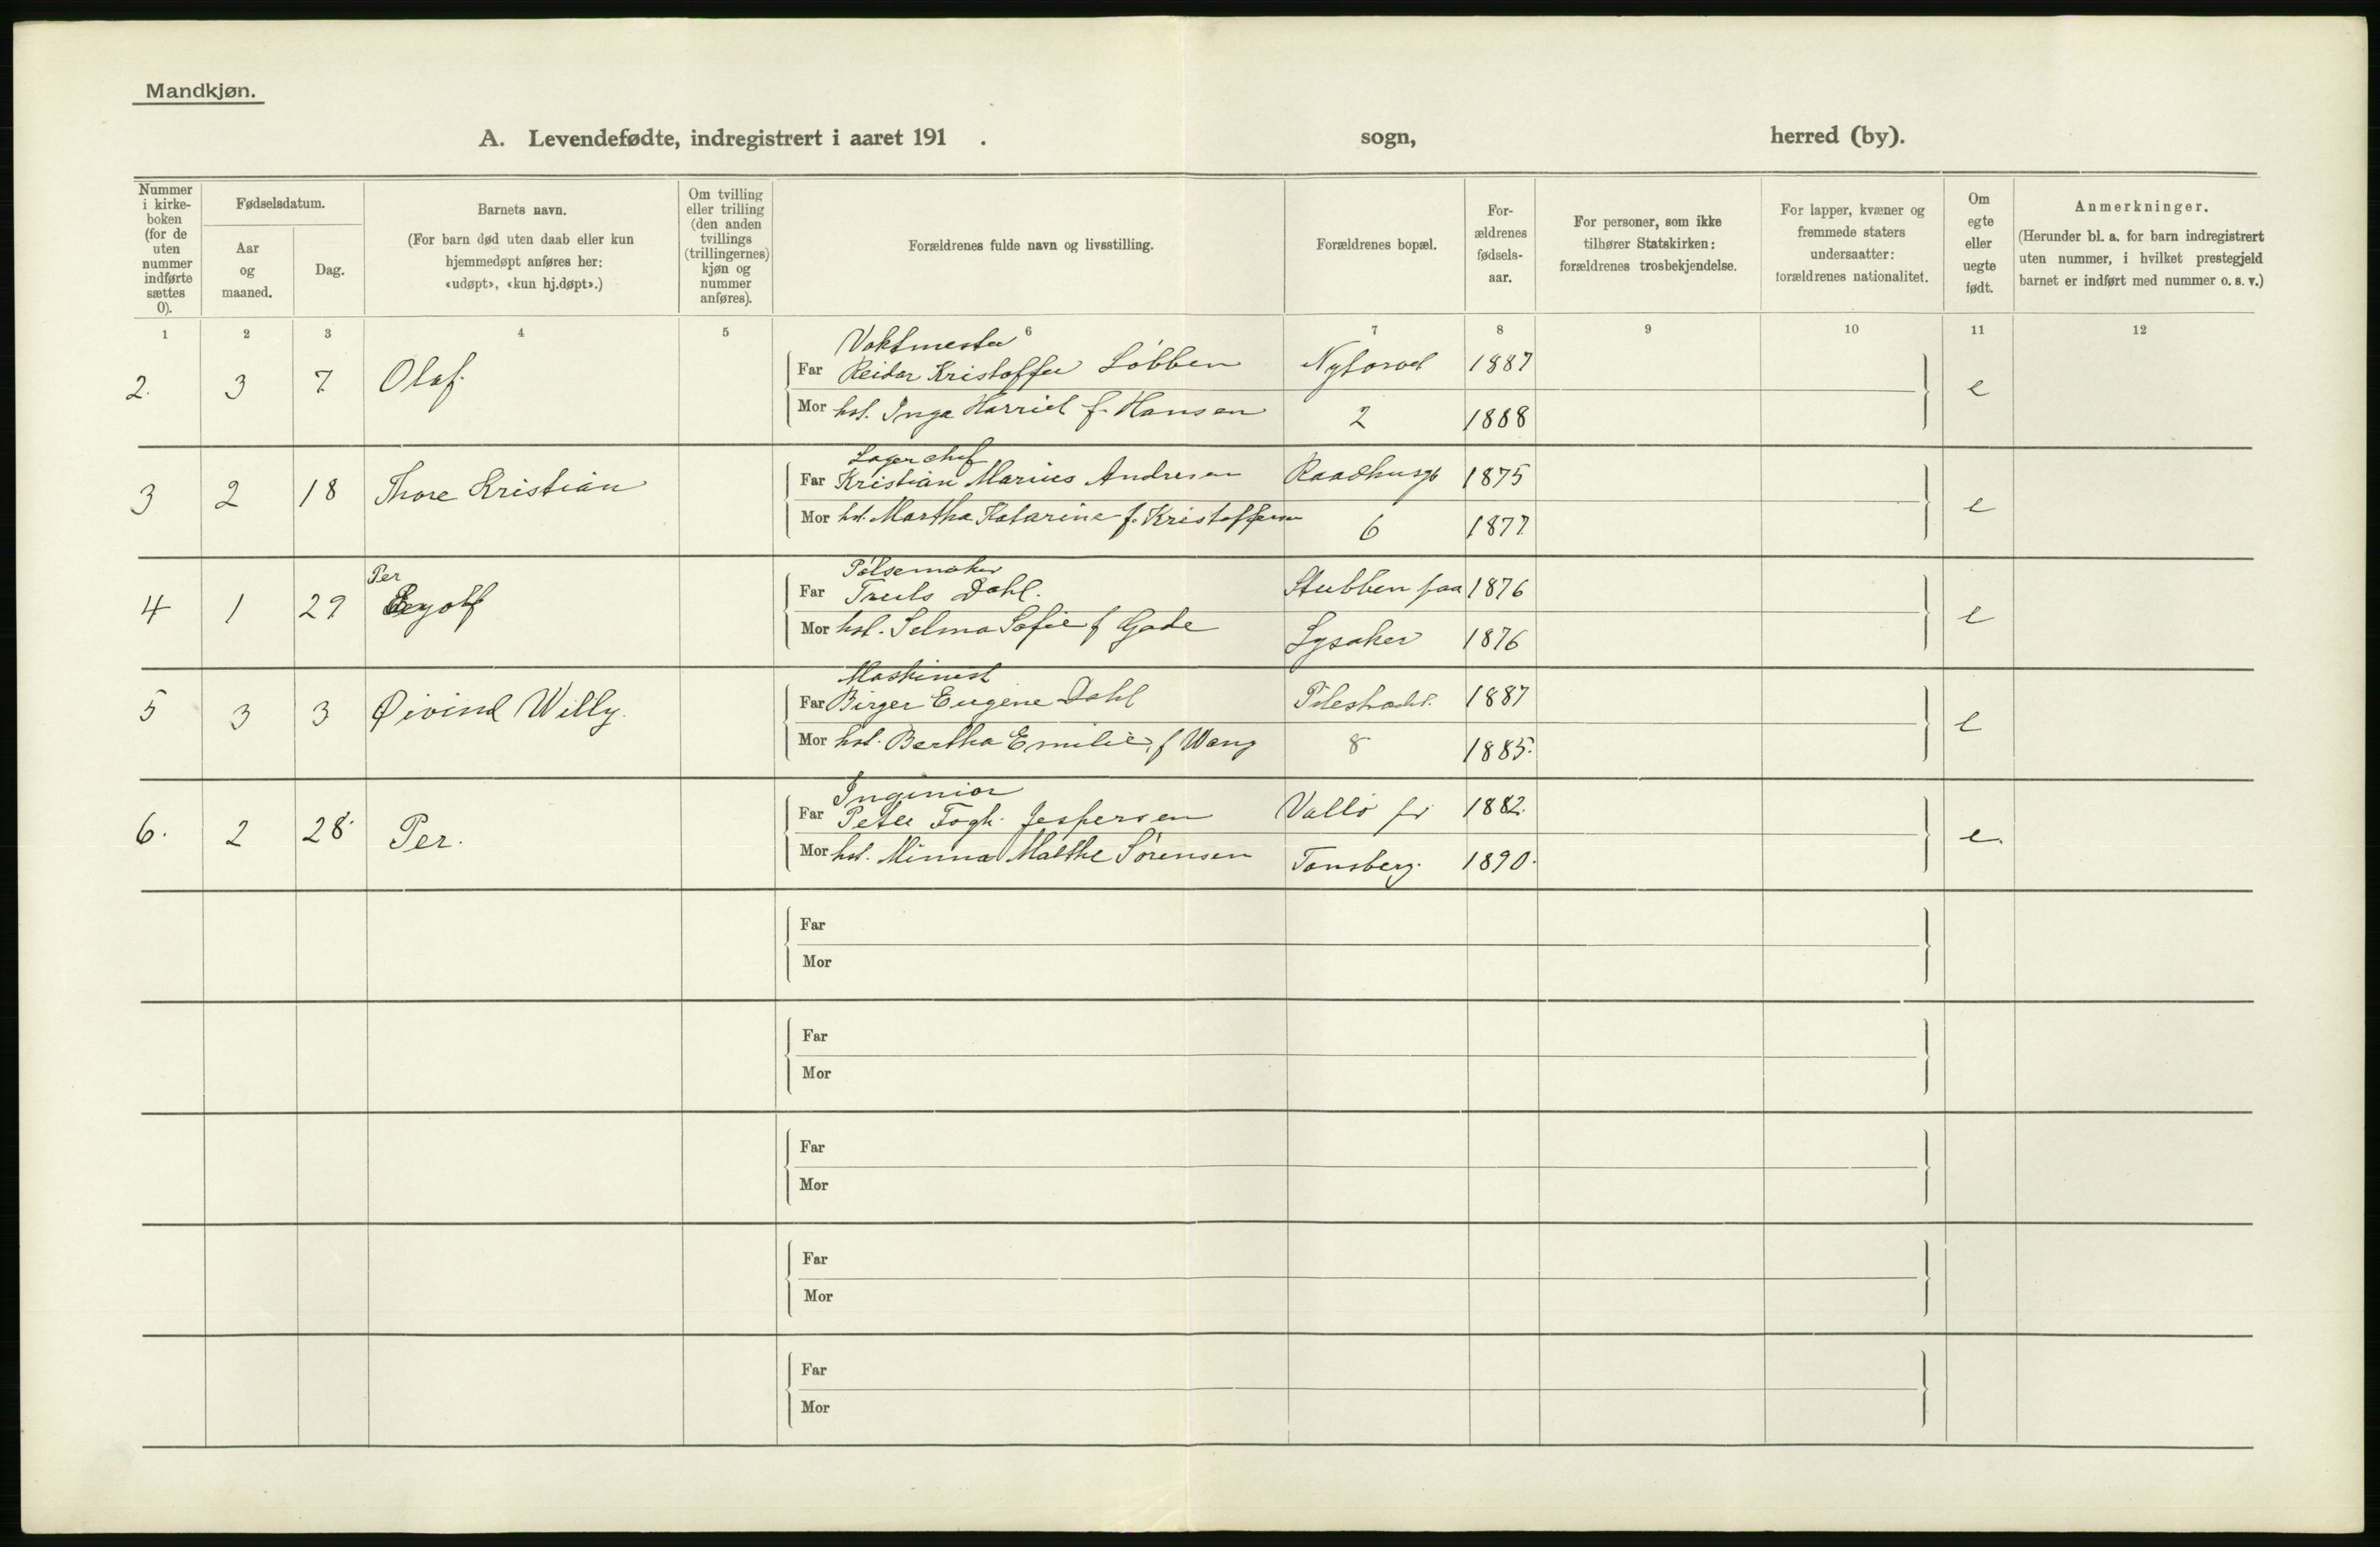 Mandkjøn.
A. Levendefødte, indregistrert i aaret 191 . sogn, herred (by).
Nummer i kirke-boken (for de uten nummer indførte sættes 0).
Fødselsdatum.
Aar og maaned.
Dag.
Barnets navn.
(For barn død uten daab eller kun hjemmedøpt anføres her: «udøpt», «kun hj.døpt».)
Om tvilling eller trilling (den anden tvillings (trillingernes) kjøn og nummer anføres).
Forældrenes fulde navn og livsstilling.
Forældrenes bopæl.
For-ældrenes fødsels-aar.
For personer, som ikke tilhører Statskirken: forældrenes trosbekjendelse.
For lapper, kvæner og fremmede staters undersaatter: forældrenes nationalitet.
Om egte eller uegte født.
Anmerkninger.
(Herunder bl. a. for barn indregistrert uten nummer, i hvilket prestegjeld barnet er indført med nummer o. s. v.)
1 2 3 4 5 6 7 8 9 10 11 12
Vaktmester
2. 3 7. Olaf. Far Reidar Kristoffer Löbben Nytorvet 1887 e
Mor hst. Inga Harriet f. Hansen 2 1888
Lagerchef
3 2 18 Thore Kristian Far Kristian Marius Andresen Raadhusgt 1875 e
Mor hst. Martha Katarina f. Kristoffersen 6 1877
Pölsemaker
Per
4 1 29 Eyolf Far Truls Dahl. Stubben paa 1876 e
Mor hst. Selma Sofie f Gade Lysaker 1876
Maskinist
5 3 3 Øivind Willy. Far Birger Eugene Dahl Pilestræd. 1887 e
Mor hst. Bertha Emilie, f Wang 8 1885.
Ingeniör
6. 2 28. Per. Far Peter Fogh Jespersen Vallö pr 1882. e.
Mor hst. Minna Malthe Sörensen Tonsberg. 1890.
Far
Mor
Far
Mor
Far
Mor
Far
Mor
Far
Mor